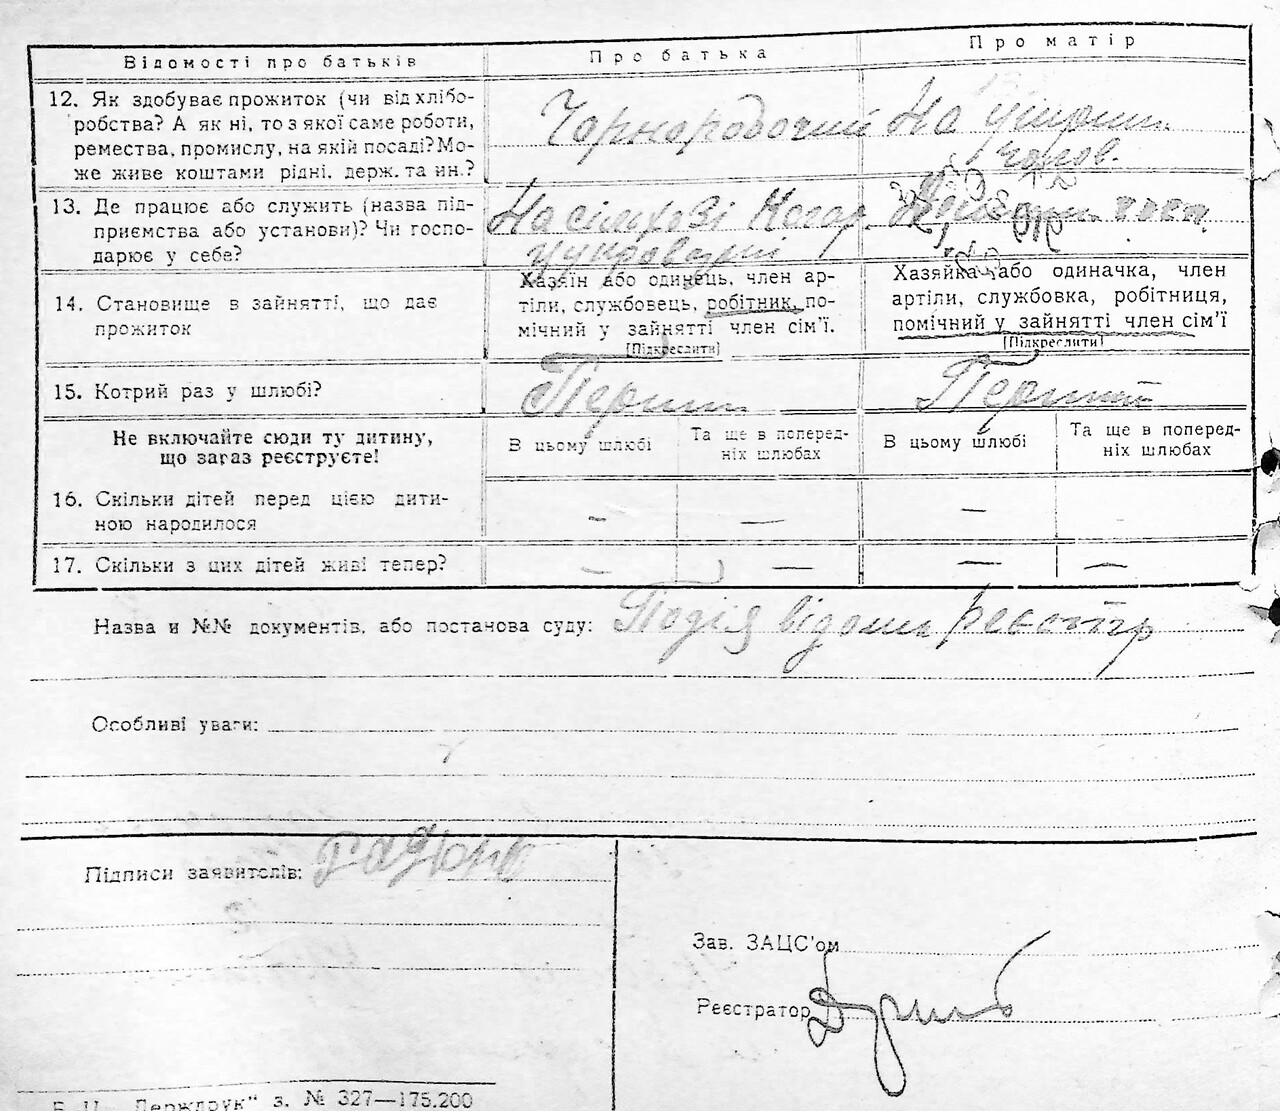 Відомості про батьків
Про батька
Про матір
12. Як здобуває прожиток (чи від хлібо-
робства? А як ні, то з якої саме роботи,
ремества, промислу, на якій посаді? Мо-
же живе коштами рідні, держ. та ин.?
Чорноробочий
На утриман.
чолов.
13. Де працює або служить (назва під-
приємства або установи)? Чи госпо-
дарює у себе?
На сільхозі
14. Становище в зайнятті, що дає
прожиток
Хазяїн або одинець, член ар-
тіли, службовець, робітник, по-
мічний у зайнятті член сім'ї.
[Підкреслити]
Хазяйка або одиначка, член
артіли, службовка, робітниця,
помічний у зайнятті член сім'ї
[Підкреслити]
15. Котрий раз у шлюбі?
Перший
Перший
Не включайте сюди ту дитину,
що загаз реєструєте!
В цьому шлюбі
Та ще в поперед-
ніх шлюбах
В цьому шлюбі
Та ще в поперед-
ніх шлюбах
16. Скільки дітей перед цією дити-
ною народилося
– — — –
17. Скільки з цих дітей живі тепер?
– — — —
Назва и №№ документів, або постанова суду: Подія відома реєстр
Особливі уваги:
Підписи заявителів:
Зав. ЗАЦС'ом
Реєстратор
Б. Ц. „Держдрук" з. № 327—175.200